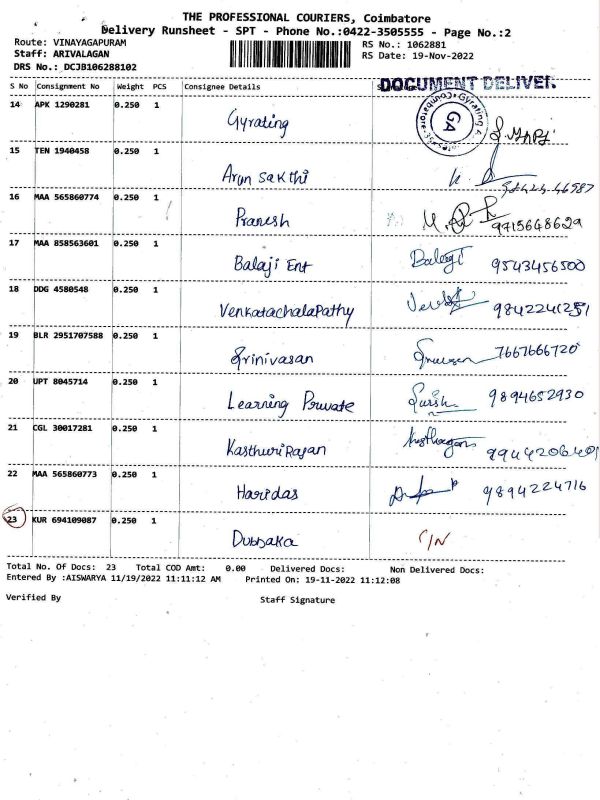 THE PROFESSIONAL COURIERS, Coimbatore
Delivery Runsheet - SPT - Phone No.:0422-3505555 - Page No.:2
Route: VINAYAGAPURAM RS No.: 1062881
Staff: ARIVALAGAN RS Date: 19-Nov-2022
DRS No.: DCJB106288102
S No Consignment No Weight PCS Consignee Details
DOCUMENT DELIVER
14 APK 1290281 0.250 1 Gyrating
GA
15 TEN 1940458 0.250 1 Arun Sakthi
16 MAA 565860774 0.250 1 Pranesh 9715648629
17 MAA 858563601 0.250 1 Balaji Ent Balaji 9543456500
18 DDG 4580548 0.250 1 VenkatachalaPathy 9842241251
19 BLR 2951707588 0.250 1 Srinivasan 7667666720
20 UPT 8045714 0.250 1 Learning Private 9894652930
21 CGL 30017281 0.250 1 Kasthuri Rajan 9944206401
22 MAA 565860773 0.250 1 Haridas 9894224716
23 KUR 694109087 0.250 1 Dubbaka C/N
Total No. Of Docs: 23 Total COD Amt: 0.00 Delivered Docs: Non Delivered Docs:
Entered By :AISWARYA 11/19/2022 11:11:12 AM Printed On: 19-11-2022 11:12:08
Verified By Staff Signature